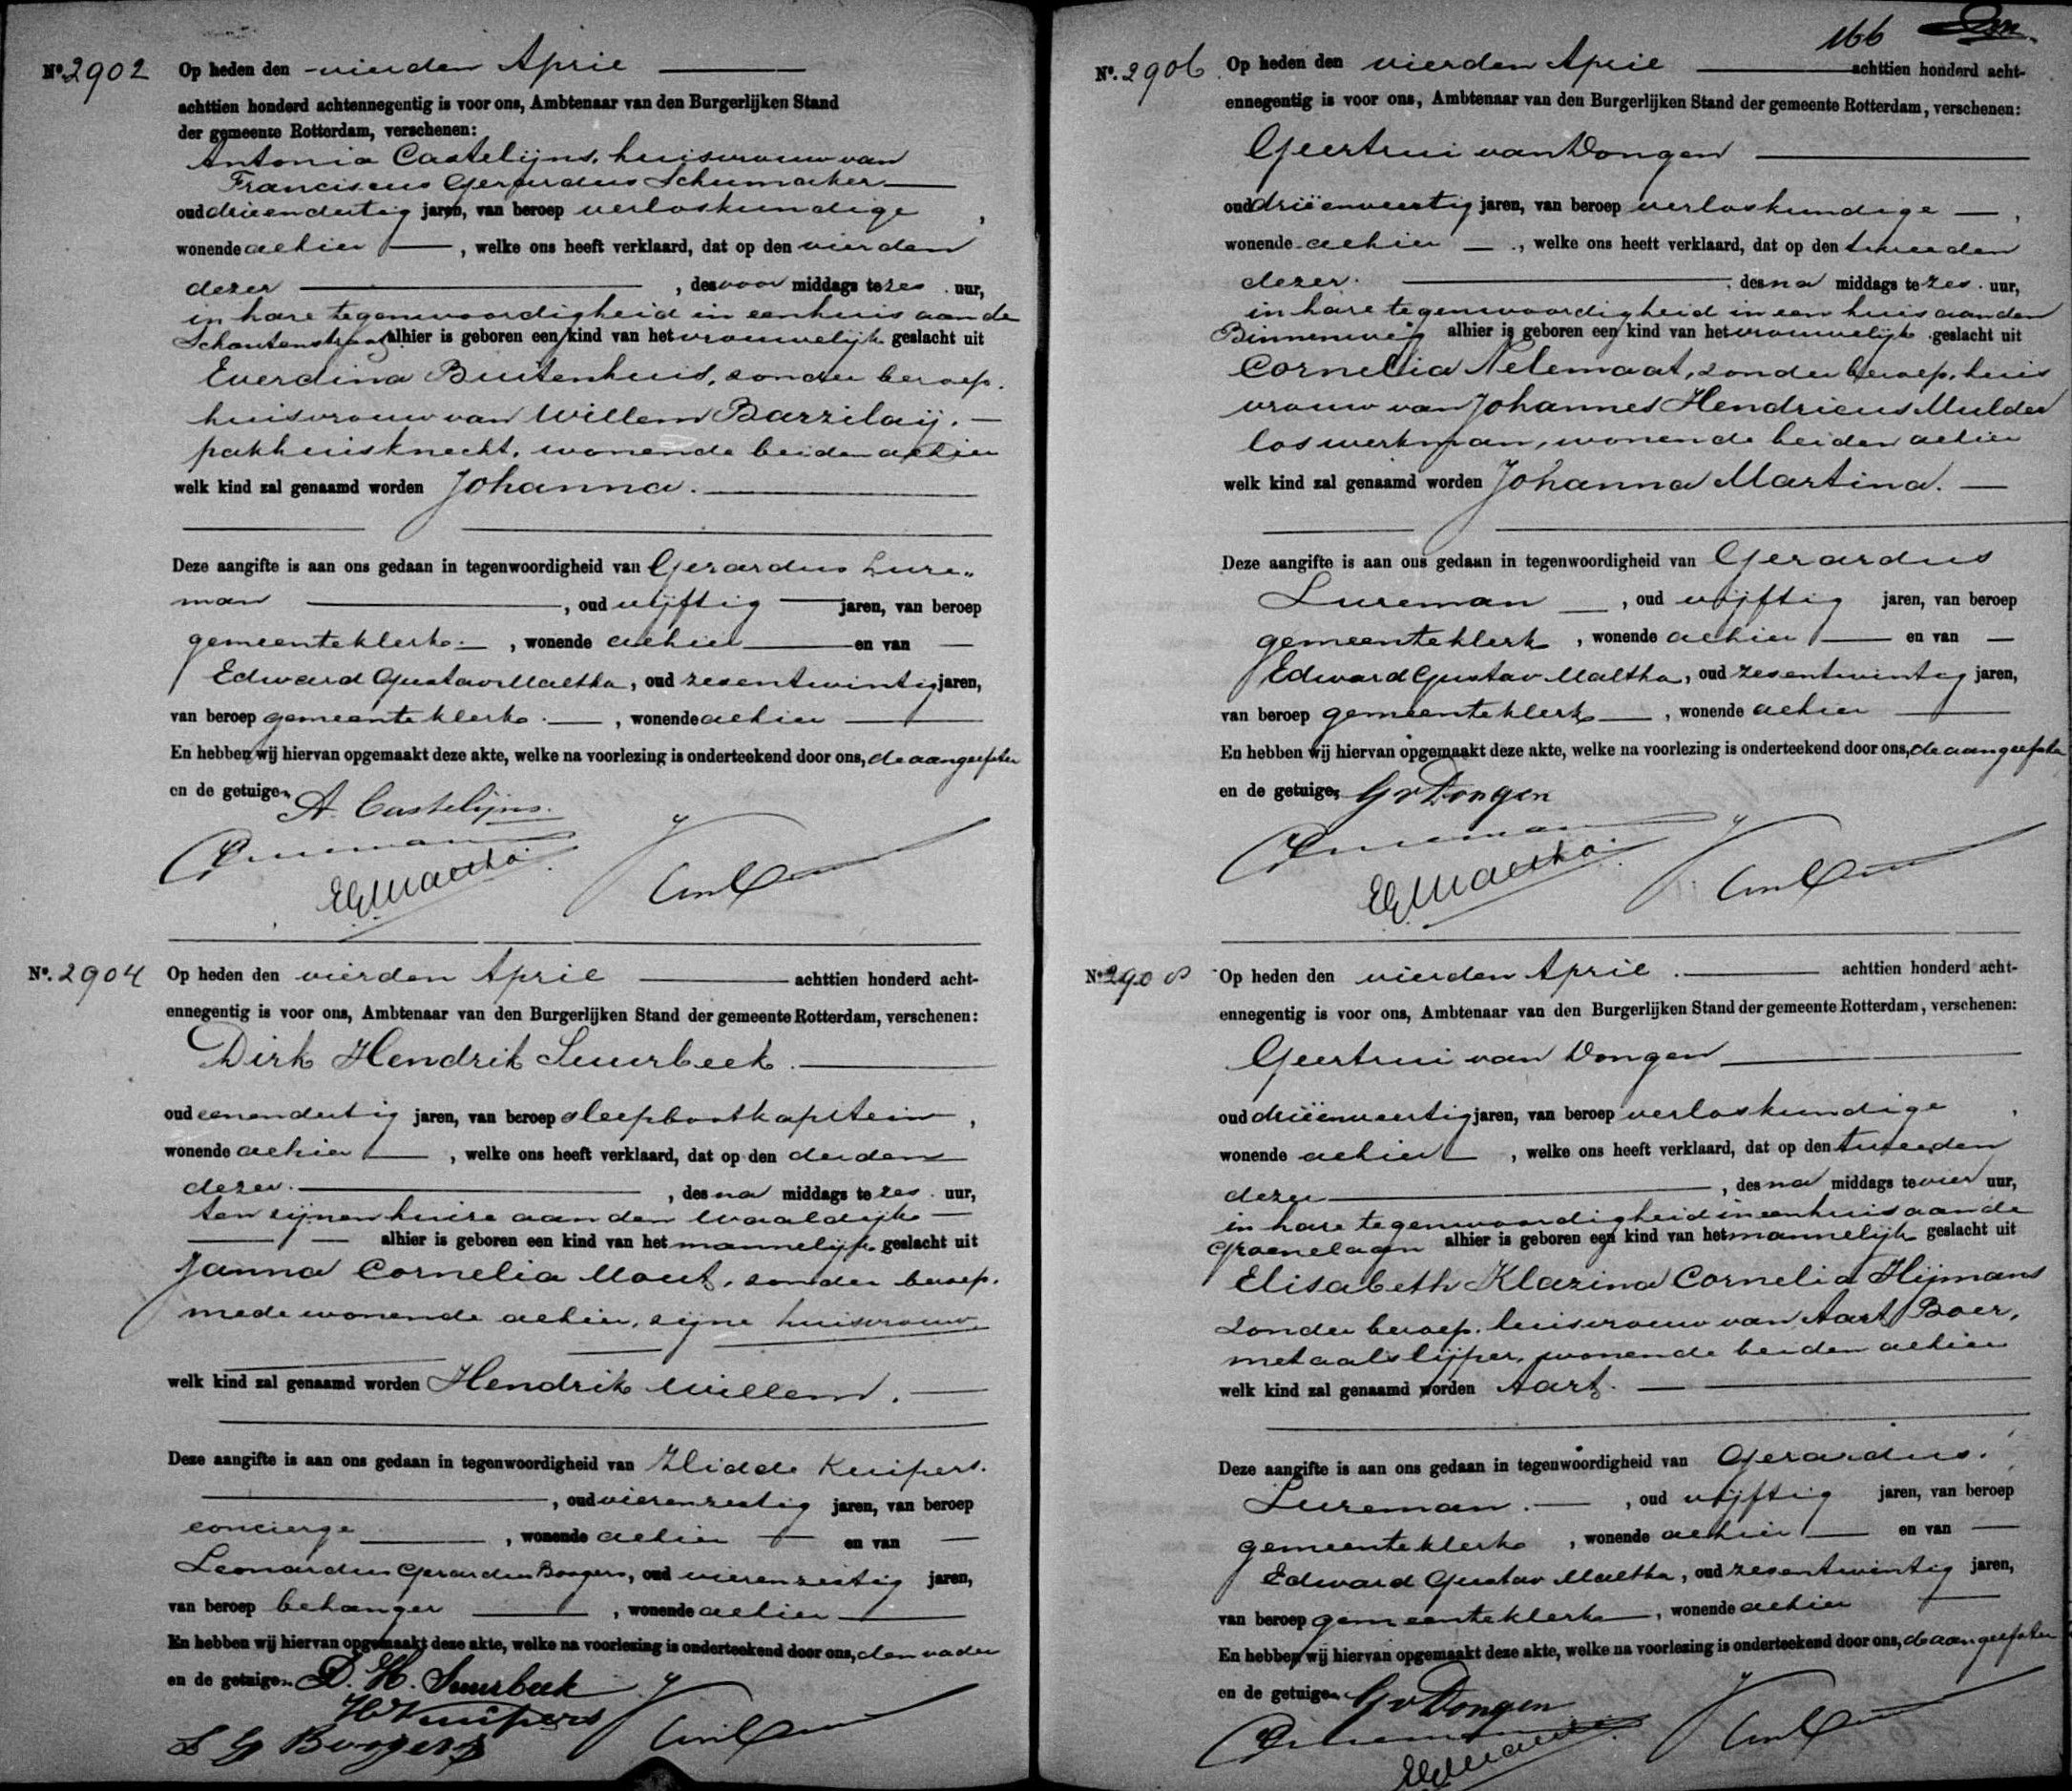 No. 2902 Op heden den vierden April
achttien honderd achtennegentig is voor ons, Ambtenaar van den Burgerlijken Stand
der gemeente Rotterdam, verschenen:
Antonia Castelijns, huisvrouw van
Franciscus Gerardus Schumacher
oud drieendertig jaren, van beroep verloskundige,
wonende alhier, welke ons heeft verklaard, dat op den vierden
dezer, des voor middags te zes uur,
in hare tegenwoordigheid in een huis aan de
Schoutenstraat alhier is geboren een kind van het vrouwelijk geslacht uit
Everdina Buitenhuis, zonder beroep,
huisvrouw van Willem Barzilaij,
pakhuisknecht, wonende beiden alhier
welk kind zal genaamd worden Johanna.
Deze aangifte is aan ons gedaan in tegenwoordigheid van Gerardus Lure„
man, oud vijftig jaren, van beroep
gemeenteklerk, wonende alhier en van
Edward Gustav Maltha, oud zesentwintig jaren,
van beroep gemeenteklerk, wonende alhier
En hebben wij hiervan opgemaakt deze akte, welke na voorlezing is onderteekend door ons, de aangeefster
en de getuigen
A. Castelijns.
EGMaltha
No. 2904 Op heden den vierden April achttien honderd acht-
ennegentig is voor ons, Ambtenaar van den Burgerlijken Stand der gemeente Rotterdam, verschenen:
Dirk Hendrik Suurbeek
oud eenendertig jaren, van beroep sleepbootkapitein,
wonende alhier, welke ons heeft verklaard, dat op den derden
dezer, des na middags te zes uur,
ten zijnen huize aan den Waaldijk
alhier is geboren een kind van het mannelijk geslacht uit
Janna Cornelia Mout, zonder beroep,
mede wonende alhier, zijne huisvrouw
welk kind zal genaamd worden Hendrik Willem.
Deze aangifte is aan ons gedaan in tegenwoordigheid van Hidde Kuipers
, oud vierenzestig jaren, van beroep
concierge, wonende alhier en van
Leonardus Gerardus Boogers, oud vierenzestig jaren,
van beroep behanger, wonende alhier
En hebben wij hiervan opgemaakt deze akte, welke na voorlezing is onderteekend door ons, den vader
en de getuigen D. H. Suurbeek
H Kuipers
L G Boogers
166
No. 2906 Op heden den vierden April achttien honderd acht-
ennegentig is voor ons, Ambtenaar van den Burgerlijken Stand der gemeente Rotterdam, verschenen:
Geertrui van Dongen
oud drieënveertig jaren, van beroep verloskundige,
wonende alhier, welke ons heeft verklaard, dat op den tweeden
dezer, des na middags te zes uur,
in hare tegenwoordigheid in een huis aan den
Binnenweg alhier is geboren een kind van het vrouwelijk geslacht uit
Cornelia Nelemaat, zonder beroep, huis
vrouw van Johannes Hendricus Mulder
los werkman, wonende beiden alhier
welk kind zal genaamd worden Johanna Martina.
Deze aangifte is aan ons gedaan in tegenwoordigheid van Gerardus
Lureman, oud vijftig jaren, van beroep
gemeenteklerk, wonende alhier en van
Edward Gustav Maltha, oud zesentwintig jaren,
van beroep gemeenteklerk, wonende alhier
En hebben wij hiervan opgemaakt deze akte, welke na voorlezing is onderteekend door ons, de aangeefster
en de getuigen G v Dongen
EGMaltha
No. 2908 Op heden den vierden April achttien honderd acht-
ennegentig is voor ons, Ambtenaar van den Burgerlijken Stand der gemeente Rotterdam, verschenen:
Geertrui van Dongen
oud drieënveertig jaren, van beroep verloskundige,
wonende alhier, welke ons heeft verklaard, dat op den tweeden
dezer, des na middags te vier uur,
in hare tegenwoordigheid in een huis aan de
Groenelaan alhier is geboren een kind van het mannelijk geslacht uit
Elisabeth Klazina Cornelia Hijmans
zonder beroep, huisvrouw van Aart Boer,
metaalslijper, wonende beiden alhier
welk kind zal genaamd worden Aart.
Deze aangifte is aan ons gedaan in tegenwoordigheid van Gerardus
Lureman, oud vijftig jaren, van beroep
gemeenteklerk, wonende alhier en van
Edward Gustav Maltha, oud zesentwintig jaren,
van beroep gemeenteklerk, wonende alhier
En hebben wij hiervan opgemaakt deze akte, welke na voorlezing is onderteekend door ons, de aangeefster
en de getuigen G v Dongen
EGMaltha